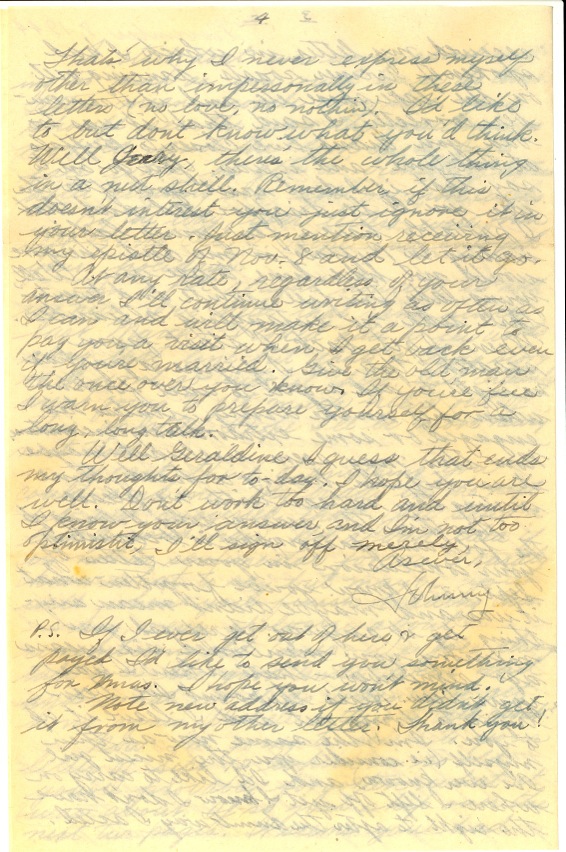 4
That's why I never express myself
other than impersonally in these
letters (no love, no nothin). I'd like
to but dont know what you'd think.
Well Jerry, there's the whole thing
in a nut shell. Remember if this
doesn't interest you just ignore it in
your letter. Just mention receiving
my epistle of Nov. 8 and let it go.
At any rate, regardless of your
answer I'll continue writing as often as
I can and will make it a point to
pay you a visit when I get back even
if you're married. Give the old man
the once over you know. If you're free
I warn you to prepare yourself for a
long, long talk.
Well Geraldine I guess that ends
my thoughts for to-day. I hope you are
well. Dont work too hard and until
I know your answer and I'm not too
optimistic, I'll sign off merely,
As ever,
Johnny
P.S. If I ever get out of here & get
payed I'd like to send you something
for Xmas. I hope you won't mind.
Note new address if you didn't get
it from my other letter. Thank you!